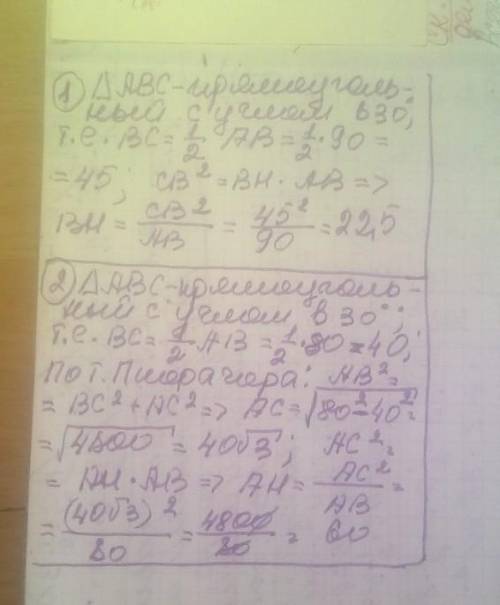 ① △ABC-прямоуголь-
ный с углом в 30°;
т.е. BC = 1/2 AB = 1/2 · 90 =
= 45; CB² = BH · AB =>
BH = CB²/AB = 45²/90 = 22,5
② △ABC-прямоуголь-
ный с углом в 30°;
т.е. BC = 1/2 · AB = 1/2 · 80 = 40;
По т. Пифагора: AB² =
= BC² + AC² => AC = √80² - 40² =
= √4800 = 40√3; AC² =
= AH · AB => AH = AC²/AB =
= (40√3)²/80 = 4800/80 = 60